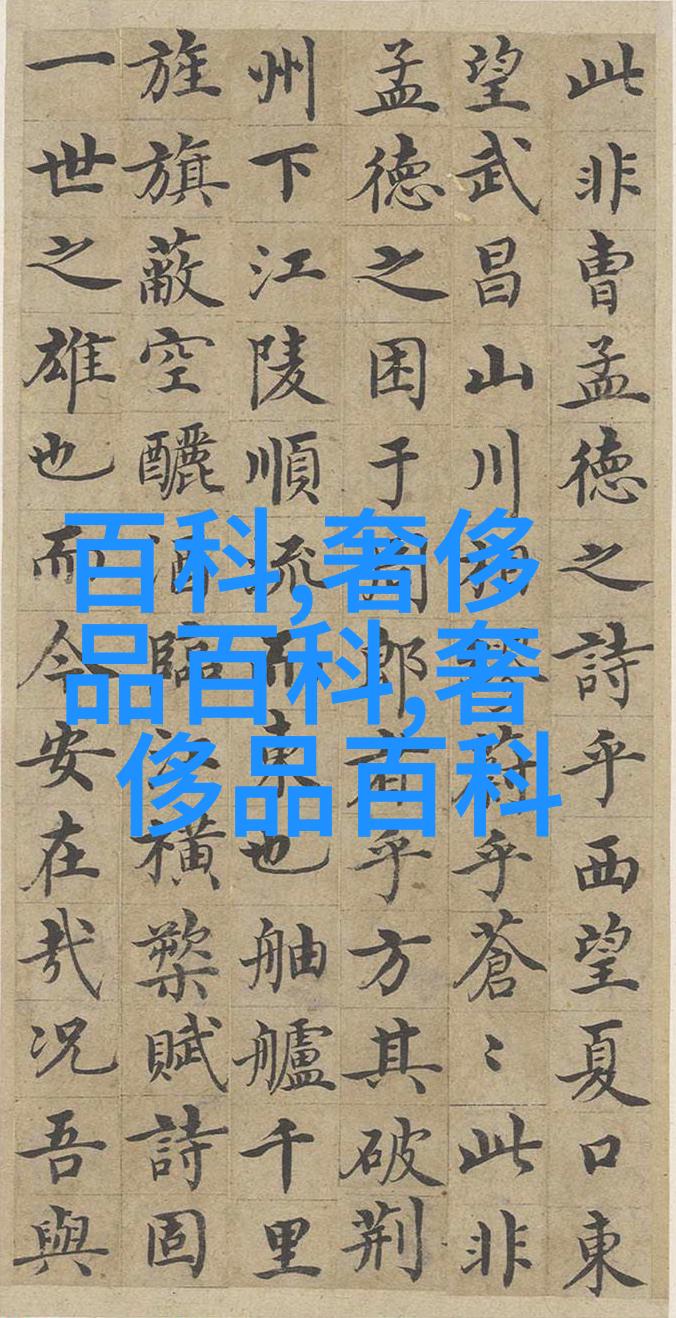 此非曹孟德之詩乎西望夏口東
望武昌山川相繆蔚乎蒼〻此非
孟德之困于周郎者乎方其破荊
州下江陵順流而東也舳艫千里
旌旗蔽空釃酒臨江橫槊賦詩固
一世之雄也而今安在哉況吾與
百科,奢侈
品百科,奢
侈品百科